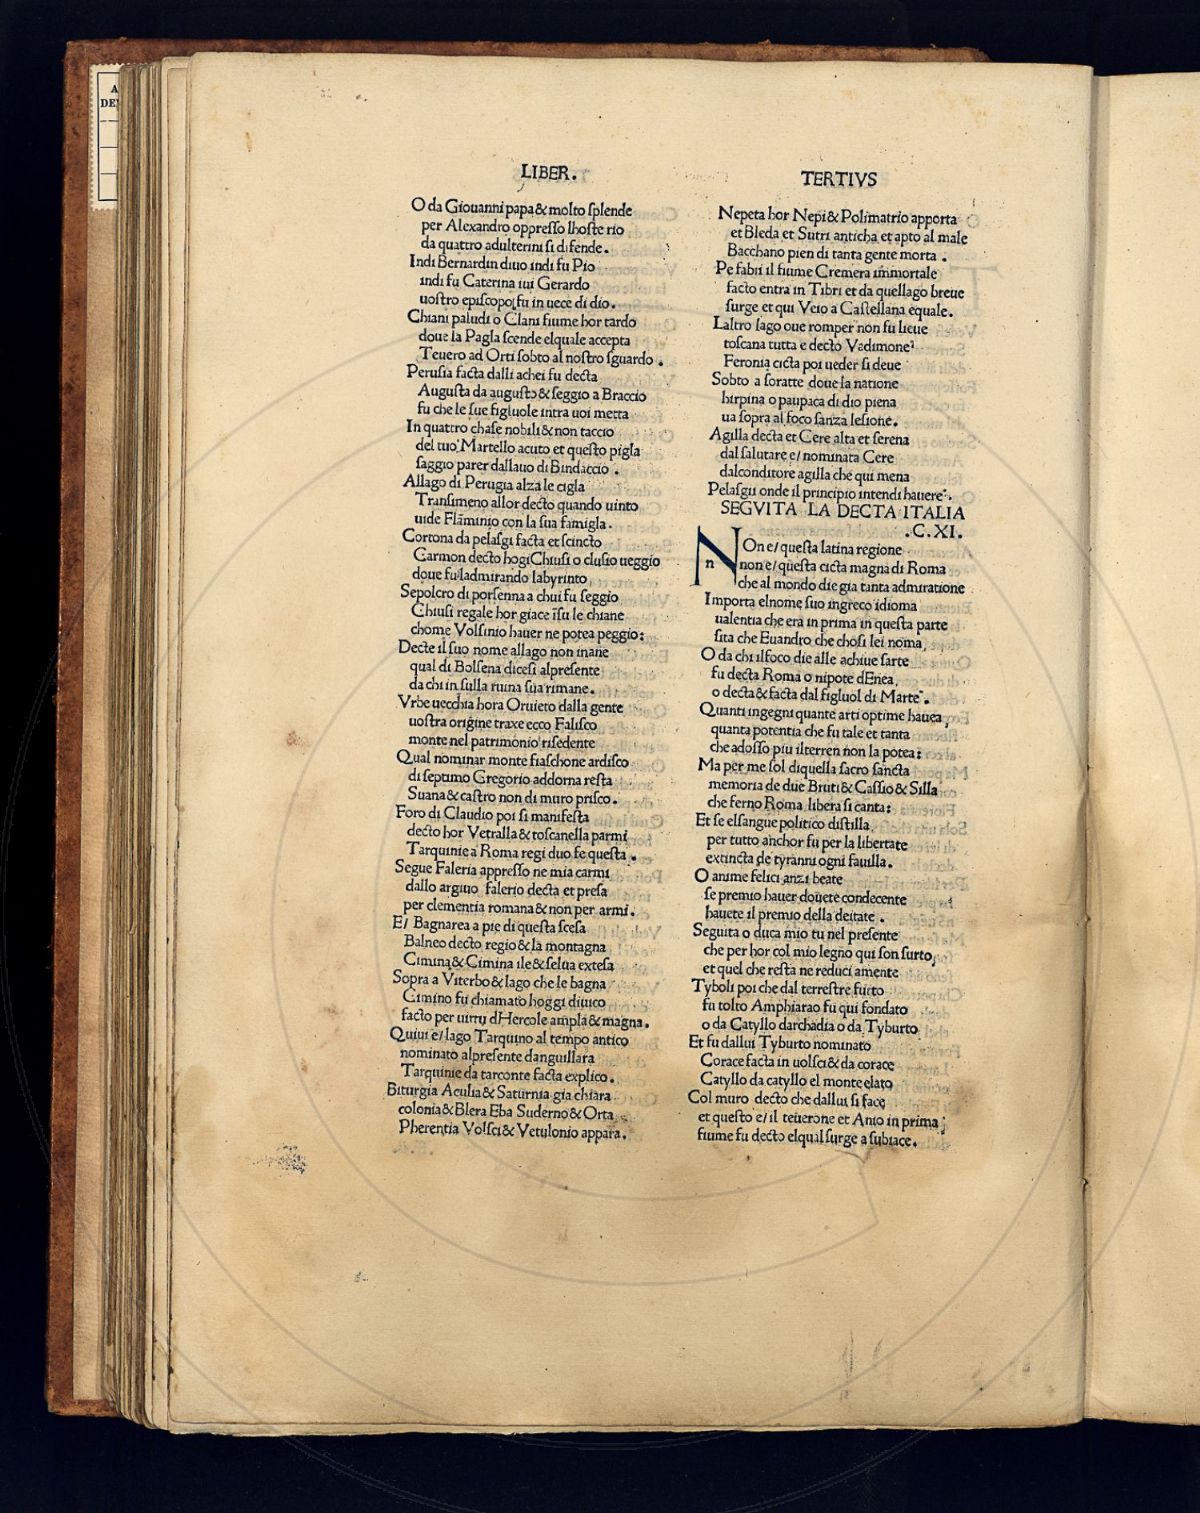 A
DE
LIBER.
O da Giouanni papa & molto ſplende
per Alexandro oppreſſo lhoſte rio
da quattro adulterini ſi difende.
Indi Bernardin diuo indi fu Pio
indi fu Caterina iui Gerardo
uoſtro epiſcopo, fu in uece di dio.
Chiani paludi o Clani fiume hor tardo
doue la Pagla ſcende elquale accepta
Teuero ad Orti ſobto al noſtro ſguardo.
Peruſia facta dalli achei fu decta
Auguſta da auguſto & ſeggio a Braccio
fu che le ſue figluole intra uoi metta
In quattro chaſe nobili & non taccio
del tuo Martello acuto et queſto pigla
ſaggio parer dallauo di Bindaccio.
Allago di Perugia alza le cigla
Tranſimeno allor decto quando uinto
uide Flāminio con la ſua famigla.
Cortona da pelaſgi facta et ſcincto
Garmon decto hogi Chiuſi o cluſio ueggio
doue fu ladmirando labyrinto
Sepolcro di porſenna a chui fu ſeggio
Chiuſi regale hor giace iſu le chiane
chome Volſinio hauer ne potea peggio:
Decte il ſuo nome allago non inane
qual di Bolſena diceſi alpreſente
da chi in ſulla ruina ſua rimane.
Vrbe uecchia hora Oruieto dalla gente
uoſtra origine traxe ecco Faliſco
monte nel patrimonio riſedente
Qual nominar monte fiaſchone ardiſco
di ſeptimo Gregorio addorna reſta
Suana & caſtro non di muro priſco.
Foro di Claudio poi ſi manifeſta
decto hor Vetralla & toſcanella parmi
Tarquinie a Roma regi duo fe queſta.
Segue Faleria appreſſo ne mia carmi
dallo argiuo falerio decta et preſa
per clementia romana & non per armi.
E/ Bagnarea a pie di queſta ſceſa
Balneo decto regio & la montagna
Cimina & Cimina ile & ſelua exteſa
Sopra a Viterbo & lago che le bagna
Cimino fu chiamato hoggi diuico
facto per uirtu dHercole ampla & magna.
Quiui e/ lago Tarquino al tempo antico
nominato alpreſente danguillara
Tarquinie da tarconte facta explico.
Biturgia Aculia & Saturnia gia chiara
colonia & Blera Eba Suderno & Orta
Pherentia Volſci & Vetulonio appara.
TERTIVS
Nepeta hor Nepi & Polimatrio apporta
et Bleda et Sutri anticha et apto al male
Bacchano pien di tanta gente morta.
Pe fabii il fiume Cremera immortale
facto entra in Tibri et da quellago breue
ſurge et qui Veio a Caſtellana equale.
Laltro lago oue romper non fu lieue
toſcana tutta e decto Vadimone
Feronia cicta poi ueder ſi deue
Sobto a ſoratte doue la natione
hirpina o paupaca di dio piena
ua ſopra al foco ſanza leſione.
Agilla decta et Cere alta et ſerena
dal ſalutare e/ nominata Cere
dalconditore agilla che qui mena
Pelaſgii onde il principio intendi hauere.
SEGVITA LA DECTA ITALIA
.C. XI.
n
NOn e/ queſta latina regione
non e/ queſta cicta magna di Roma
che al mondo die gia tanta admiratione
Importa elnome ſuo ingreco idioma
ualentia che era in prima in queſta parte
ſita che Euandro che choſi lei noma,
O da chi ilfoco die alle achiue ſarte
fu decta Roma o nipote dEnea,
o decta & facta dal figluol di Marte.
Quanti ingegni quante arti optime hauea,
quanta potentia che fu tale et tanta
che adoſſo piu ilterren non la potea:
Ma per me ſol diquella ſacro ſancta
memoria de due Bruti & Caſſio & Silla
che ferno Roma libera ſi canta:
Et ſe elſangue politico diſtilla
per tutto anchor fu per la libertate
extincta de tyranni ogni fauilla.
O anime felici anzi beate
ſe premio hauer douete condecente
hauete il premio della deitate.
Seguita o duca mio tu nel preſente
che per hor col mio legno qui ſon ſurto,
et quel che reſta ne reduci amente
Tyboli poi che dal terreſtre furto
fu tolto Amphiarao fu qui fondato
o da Catyllo darchadia o da Tyburto
Et fu dallui Tyburto nominato
Corace facta in uolſci & da corace
Catyllo da catyllo el monte elato
Col muro decto che dallui ſi face
et queſto e/ il teuerone et Anio in prima
fiume fu decto elqual ſurge a ſubiace.